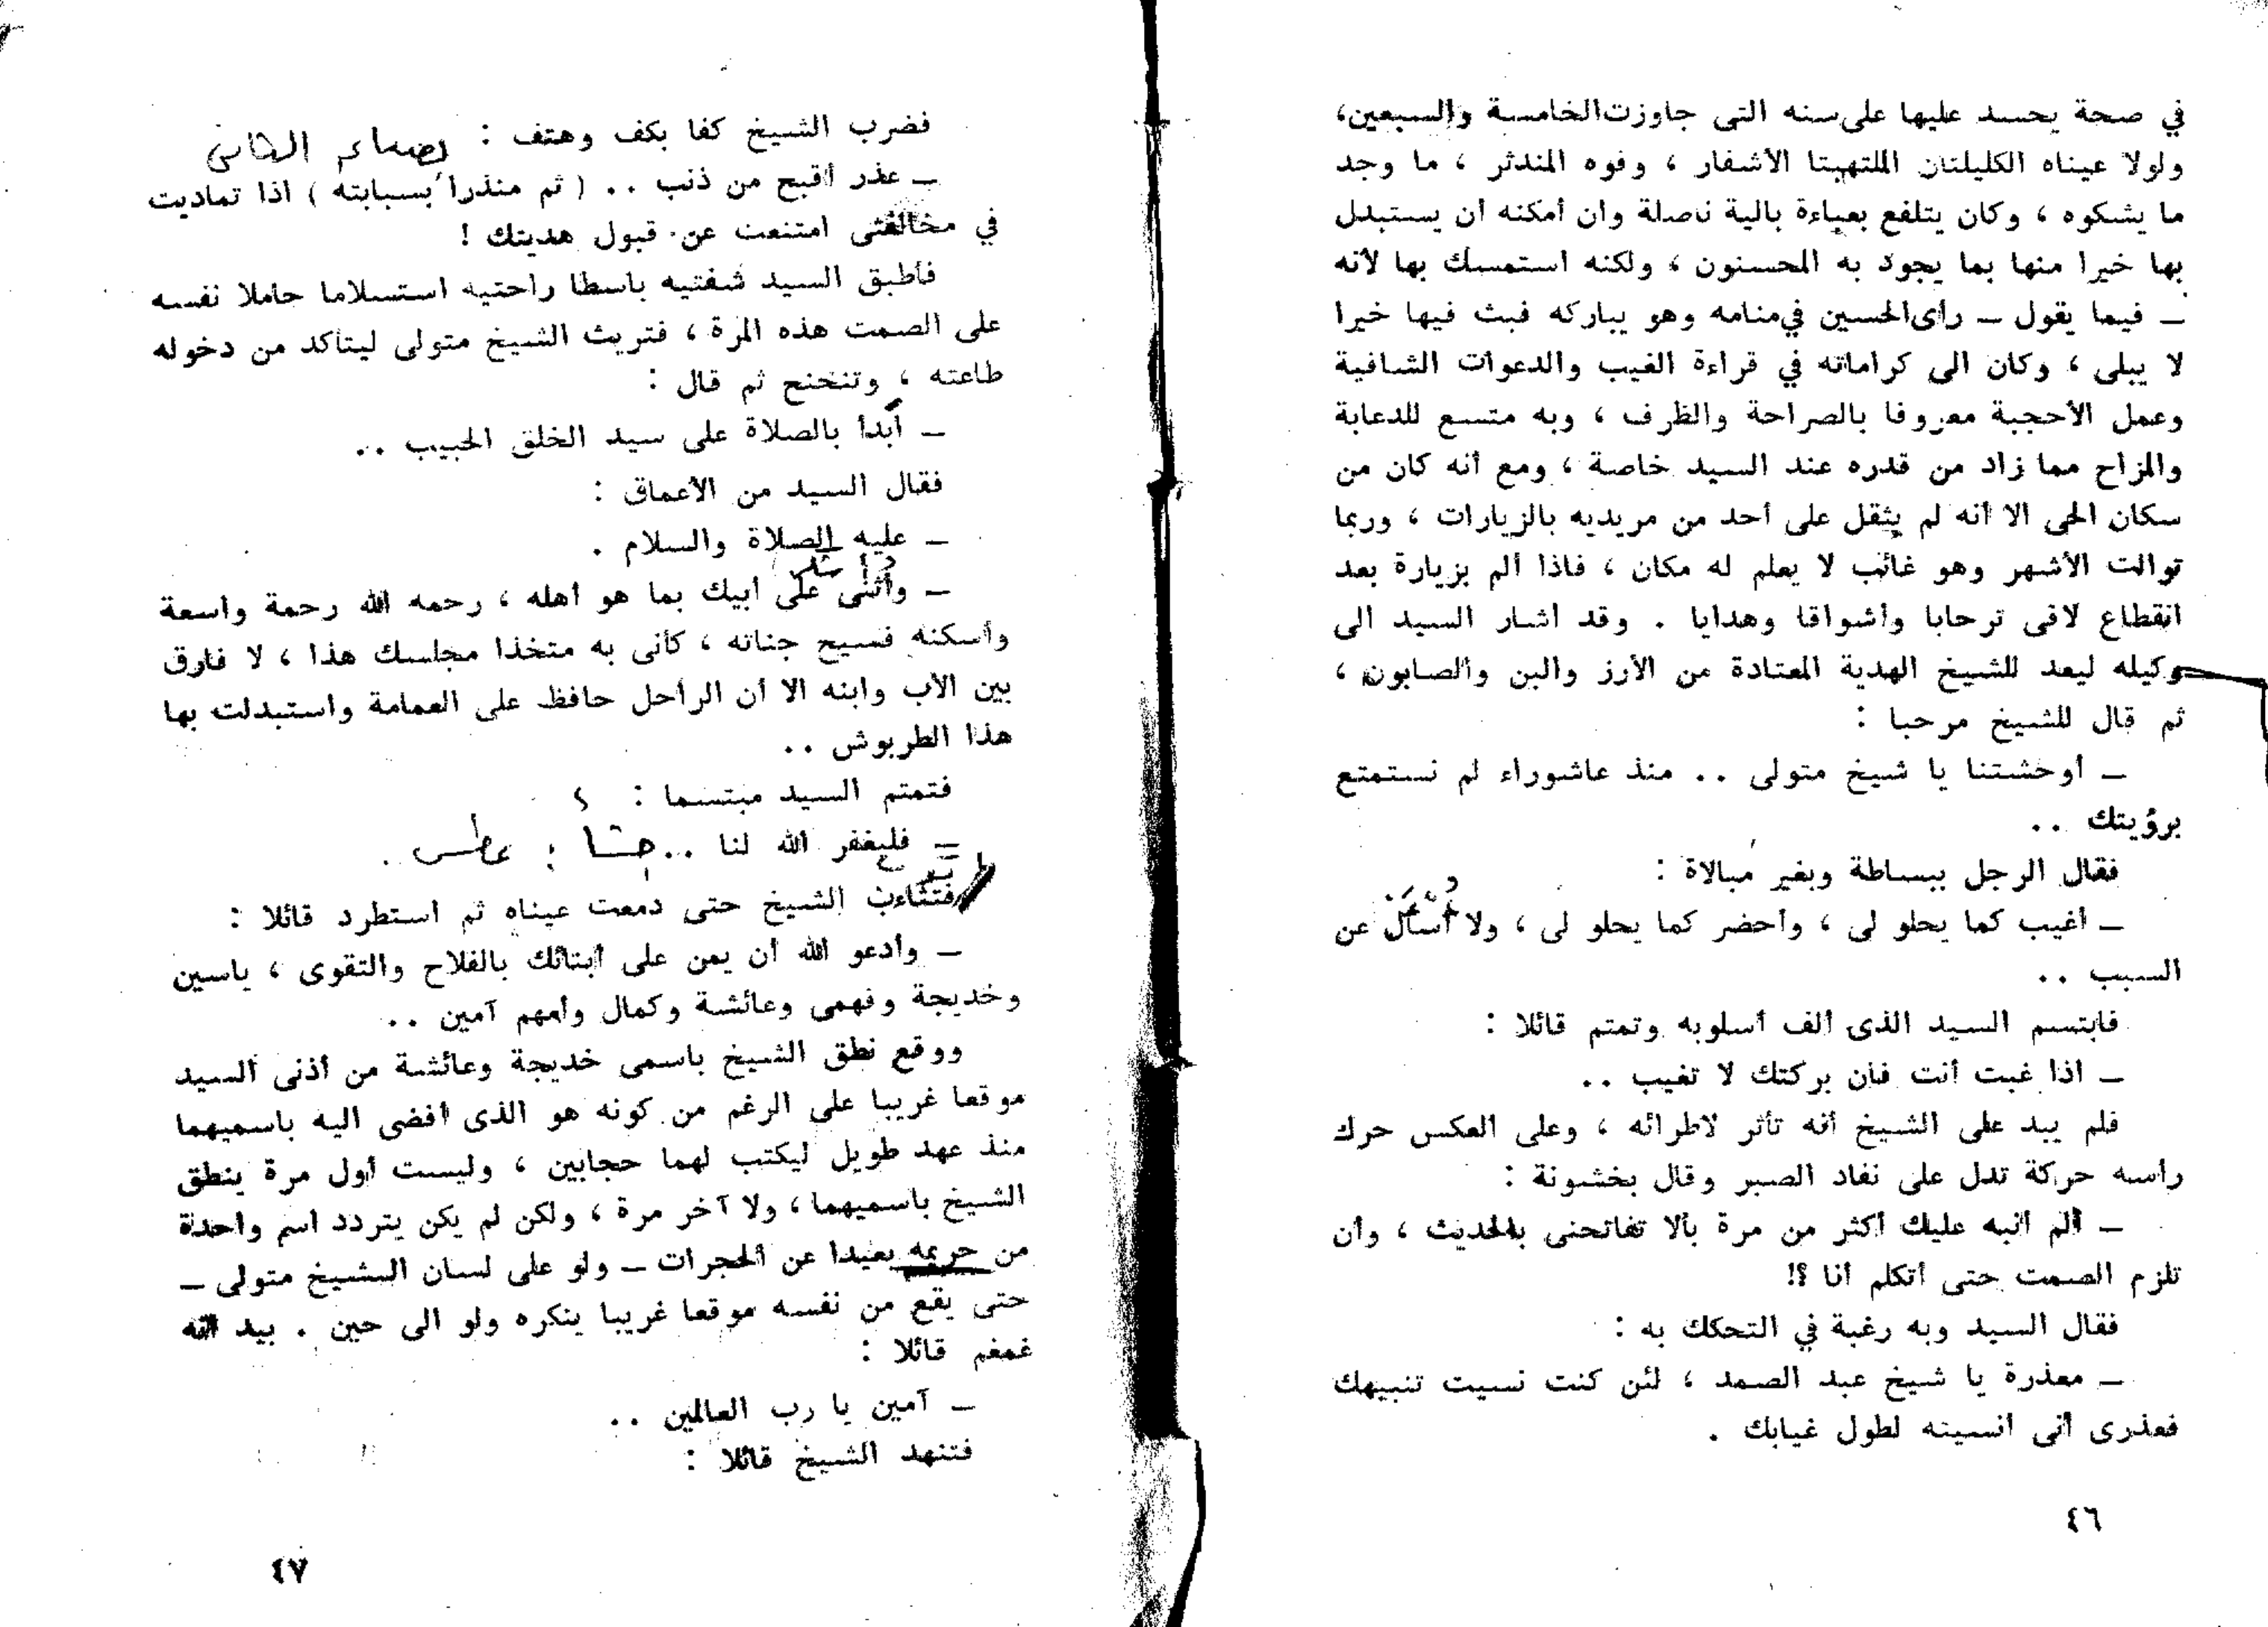 في صحة يحسد عليها على سنه التى جاوزت الخامسة والسبعين،
ولولا عيناه الكليلتان الملتهبتا الأشفار ، وفوه المندثر ، ما وجد
ما يشكوه ، وكان يتلفع بعباءة بالية ناصلة وان أمكنه أن يستبدل
بها خيرا منها بما يجود به المحسنون ، ولكنه استمسك بها لأنه
ـ فيما يقول ـ رأى الحسين في منامه وهو يباركه فبث فيها خيرا
لا يبلى ، وكان الى كراماته في قراءة الغيب والدعوات الشافية
وعمل الأحجبة معروفا بالصراحة والظرف ، وبه متسع للدعابة
والمزاح مما زاد من قدره عند السيد خاصة ، ومع أنه كان من
سكان الحى الا أنه لم يثقل على أحد من مريديه بالزيارات ، وربما
توالت الأشهر وهو غائب لا يعلم له مكان ، فاذا ألم بزيارة بعد
انقطاع لاقى ترحابا وأشواقا وهدايا . وقد أشار السيد الى
وكيله ليعد للشيخ الهدية المعتادة من الأرز والبن والصابون ،
ثم قال للشيخ مرحبا :
ـ أوحشتنا يا شيخ متولى .. منذ عاشوراء لم نستمتع
برؤيتك ..
فقال الرجل ببساطة وبغير مبالاة :
ـ أغيب كما يحلو لى ، وأحضر كما يحلو لى ، ولا أسأل عن
السبب ..
فابتسم السيد الذى ألف أسلوبه وتمتم قائلا :
ـ اذا غبت أنت فان بركتك لا تغيب ..
فلم يبد على الشيخ أنه تأثر لاطرائه ، وعلى العكس حرك
رأسه حركة تدل على نفاد الصبر وقال بخشونة :
ـ ألم أنبه عليك أكثر من مرة بألا تفاتحنى بالحديث ، وأن
تلزم الصمت حتى أتكلم أنا ؟!
فقال السيد وبه رغبة في التحكك به :
ـ معذرة يا شيخ عبد الصمد ، لئن كنت نسيت تنبيهك
فعذرى أنى أنسيته لطول غيابك .
٤٦
فضرب الشيخ كفا بكف وهتف :
ـ عذر أقبح من ذنب .. ( ثم منذرا بسبابته ) اذا تماديت
في مخالفتى امتنعت عن قبول هديتك !
فأطبق السيد شفتيه باسطا راحتيه استسلاما حاملا نفسه
على الصمت هذه المرة ، فتريث الشيخ متولى ليتأكد من دخوله
طاعته ، وتنحنح ثم قال :
ـ أبدأ بالصلاة على سيد الخلق الحبيب ..
فقال السيد من الأعماق :
ـ عليه الصلاة والسلام .
ـ وأثنى على أبيك بما هو أهله ، رحمه الله رحمة واسعة
وأسكنه فسيح جناته ، كأنى به متخذا مجلسك هذا ، لا فارق
بين الأب وابنه الا أن الراحل حافظ على العمامة واستبدلت بها
هذا الطربوش ..
فتمتم السيد مبتسما : ؟
ـ فليغفر الله لنا .. : عطس .
فتثاءب الشيخ حتى دمعت عيناه ثم استطرد قائلا :
ـ وأدعو الله أن يمن على أبنائك بالفلاح والتقوى ، ياسين
وخديجة وفهمى وعائشة وكمال وأمهم آمين ..
ووقع نطق الشيخ باسمى خديجة وعائشة من أذنى السيد
موقعا غريبا على الرغم من كونه هو الذى أفضى اليه باسميهما
منذ عهد طويل ليكتب لهما حجابين ، وليست أول مرة ينطق
الشيخ باسميهما ، ولا آخر مرة ، ولكن لم يكن يتردد اسم واحدة
من حريمه بعيدا عن الحجرات ـ ولو على لسان الشيخ متولى ـ
حتى يقع من نفسه موقعا غريبا ينكره ولو الى حين . بيد أنه
غمغم قائلا :
ـ آمين يا رب العالمين ..
فتنهد الشيخ قائلا :
٤٧